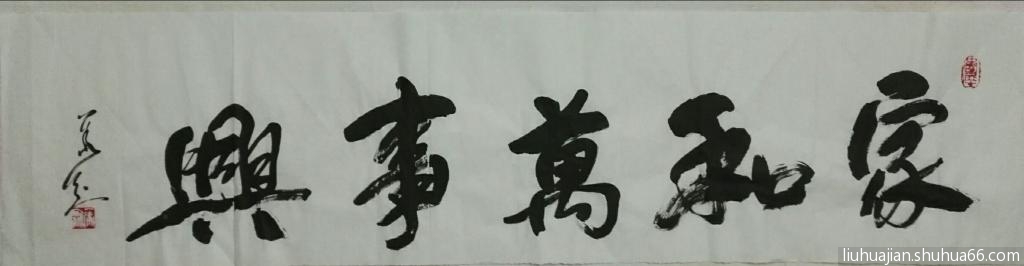 家和萬事興
liuhuajian.shuhua66.com